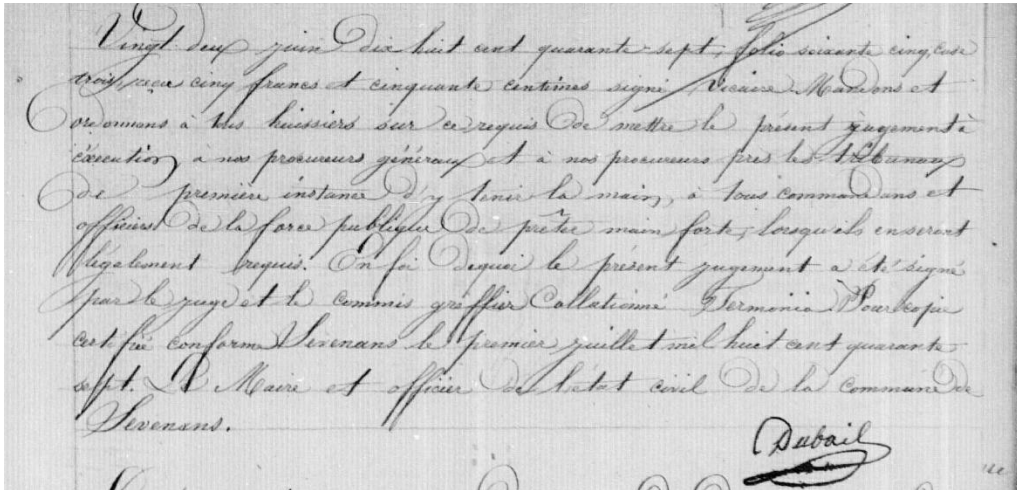 Vingt deux juin Dix huit cent quarante sept, folio soixante cinq, case
trois, reçu cinq francs et cinquante centimes signé Vicaire Mandons et
ordonnons à tous huissiers sur ce requis de mettre le présent jugement à
éxécution, à nos procureurs généraux et à nos procureurs près les tribunaux
de première instance d'y tenir la main, à tous commandans et
officiers de la force publique de prêter main forte, lorsqu'ils en seront
légalement requis. En foi dequoi le présent jugement a été signé
par le juge et le commis greffier Collationné Termonia Pour copie
certifiée conforme Sevenans le premier juillet mil huit cent quarante
sept. Le Maire et officier de l'état civil de la commune de
Sevenans.
Dubail